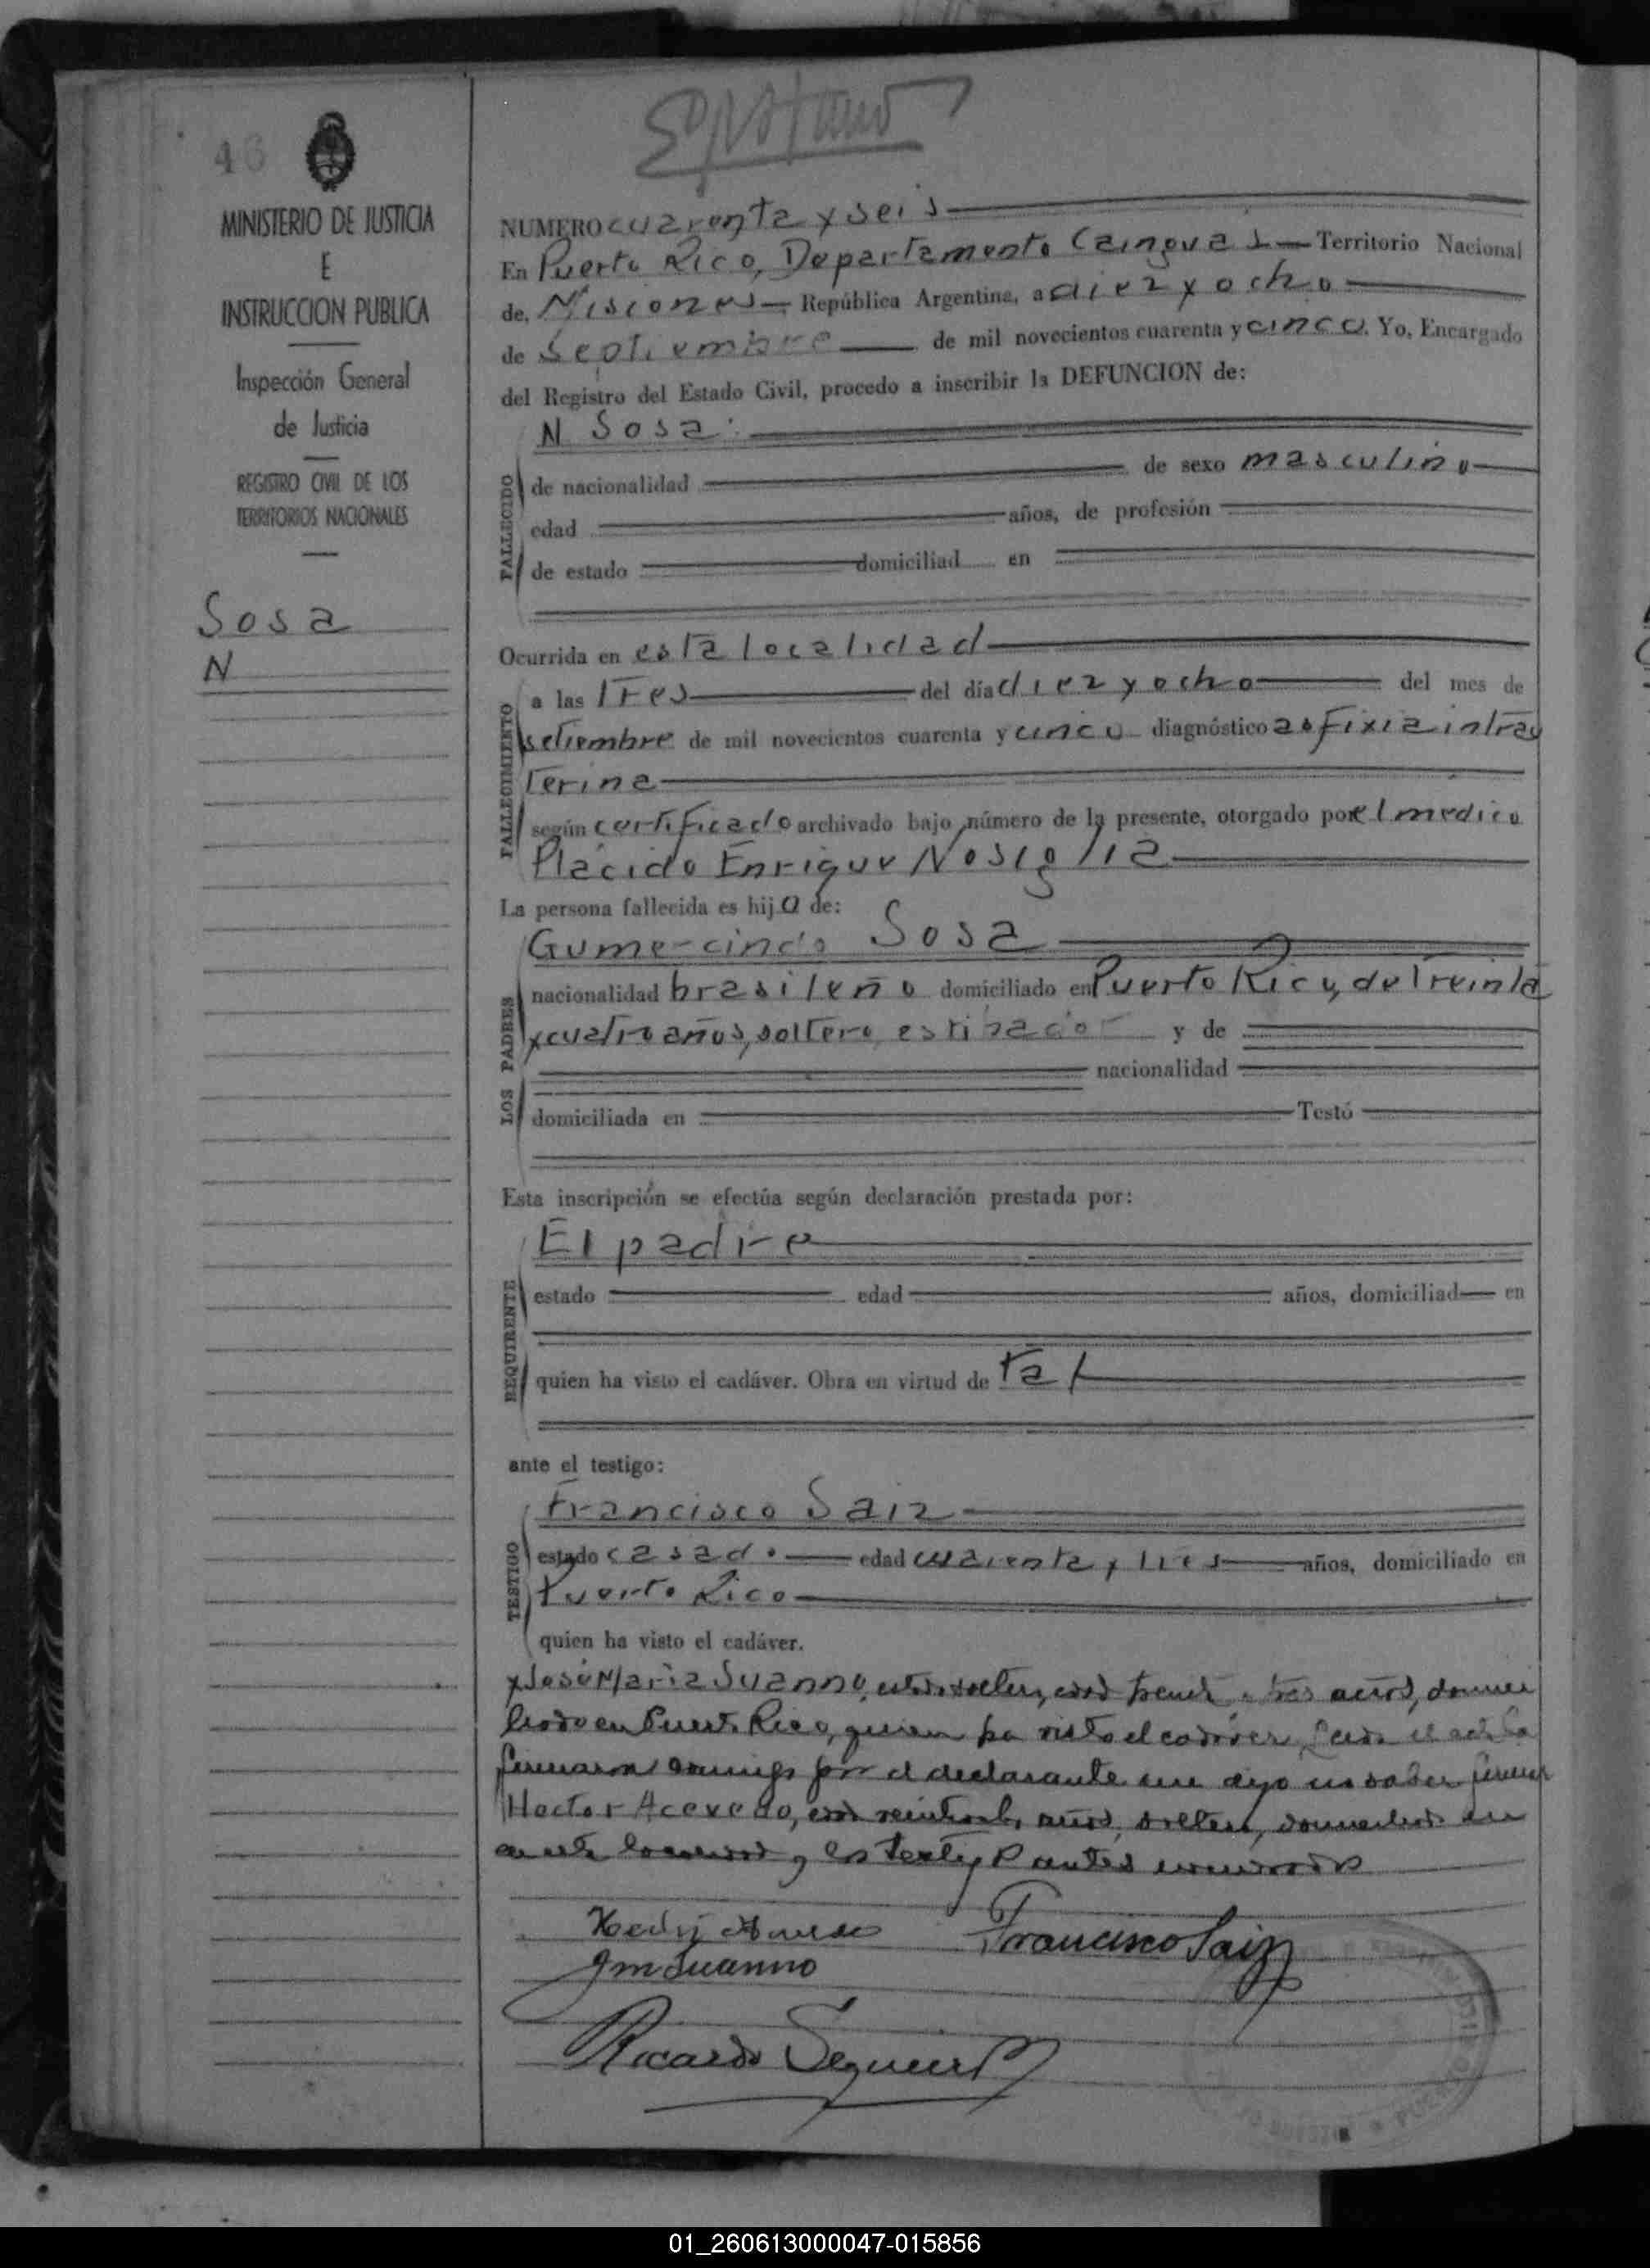 46
MINISTERIO DE JUSTICIA
E
INSTRUCCION PUBLICA
Inspección General
de Justicia
REGISTRO CIVIL DE LOS
TERRITORIOS NACIONALES
Sosa
N
NUMERO cuarenta y seis
En Puerto Rico, Departamento Cainguas Territorio Nacional
de Misiones República Argentina, a diez y ocho
de Septiembre de mil novecientos cuarenta y cinco. Yo, Encargado
del Registro del Estado Civil, procedo a inscribir la DEFUNCION de:
N Sosa
FALLECIDO
de nacionalidad de sexo masculino
edad años, de profesión
de estado domiciliad en
Ocurrida en esta localidad
FALLECIMIENTO
a las tres del día diez y ocho del mes de
setiembre de mil novecientos cuarenta y cinco diagnóstico asfixia intrau
terina
según certificado archivado bajo número de la presente, otorgado por el medico
Plácido Enrique Nosiglia
La persona fallecida es hijo de:
LOS PADRES
Gumercindo Sosa
nacionalidad brasileño domiciliado en Puerto Rico, de treinta
y cuatro años, soltero, estibador y de
nacionalidad
domiciliada en Testó
Esta inscripción se efectúa según declaración prestada por:
REQUIRENTE
El padre
estado edad años, domiciliad en
quien ha visto el cadáver. Obra en virtud de tal
ante el testigo:
TESTIGO
Francisco Saiz
estado casado edad cuarenta y tres años, domiciliado en
Puerto Rico
quien ha visto el cadáver.
y José María Suanno, estado soltero, edad treinta y tres años, domici
liado en Puerto Rico, quien ha visto el cadáver. Leida el acta la
firmaron conmigo por el declarante que dijo no saber firmar
Hector Acevedo, edad años, soltero, domiciliado en
esta localidad y los testigos antes
Francisco Saiz
JM Suanno
Ricardo
01_260613000047-015856